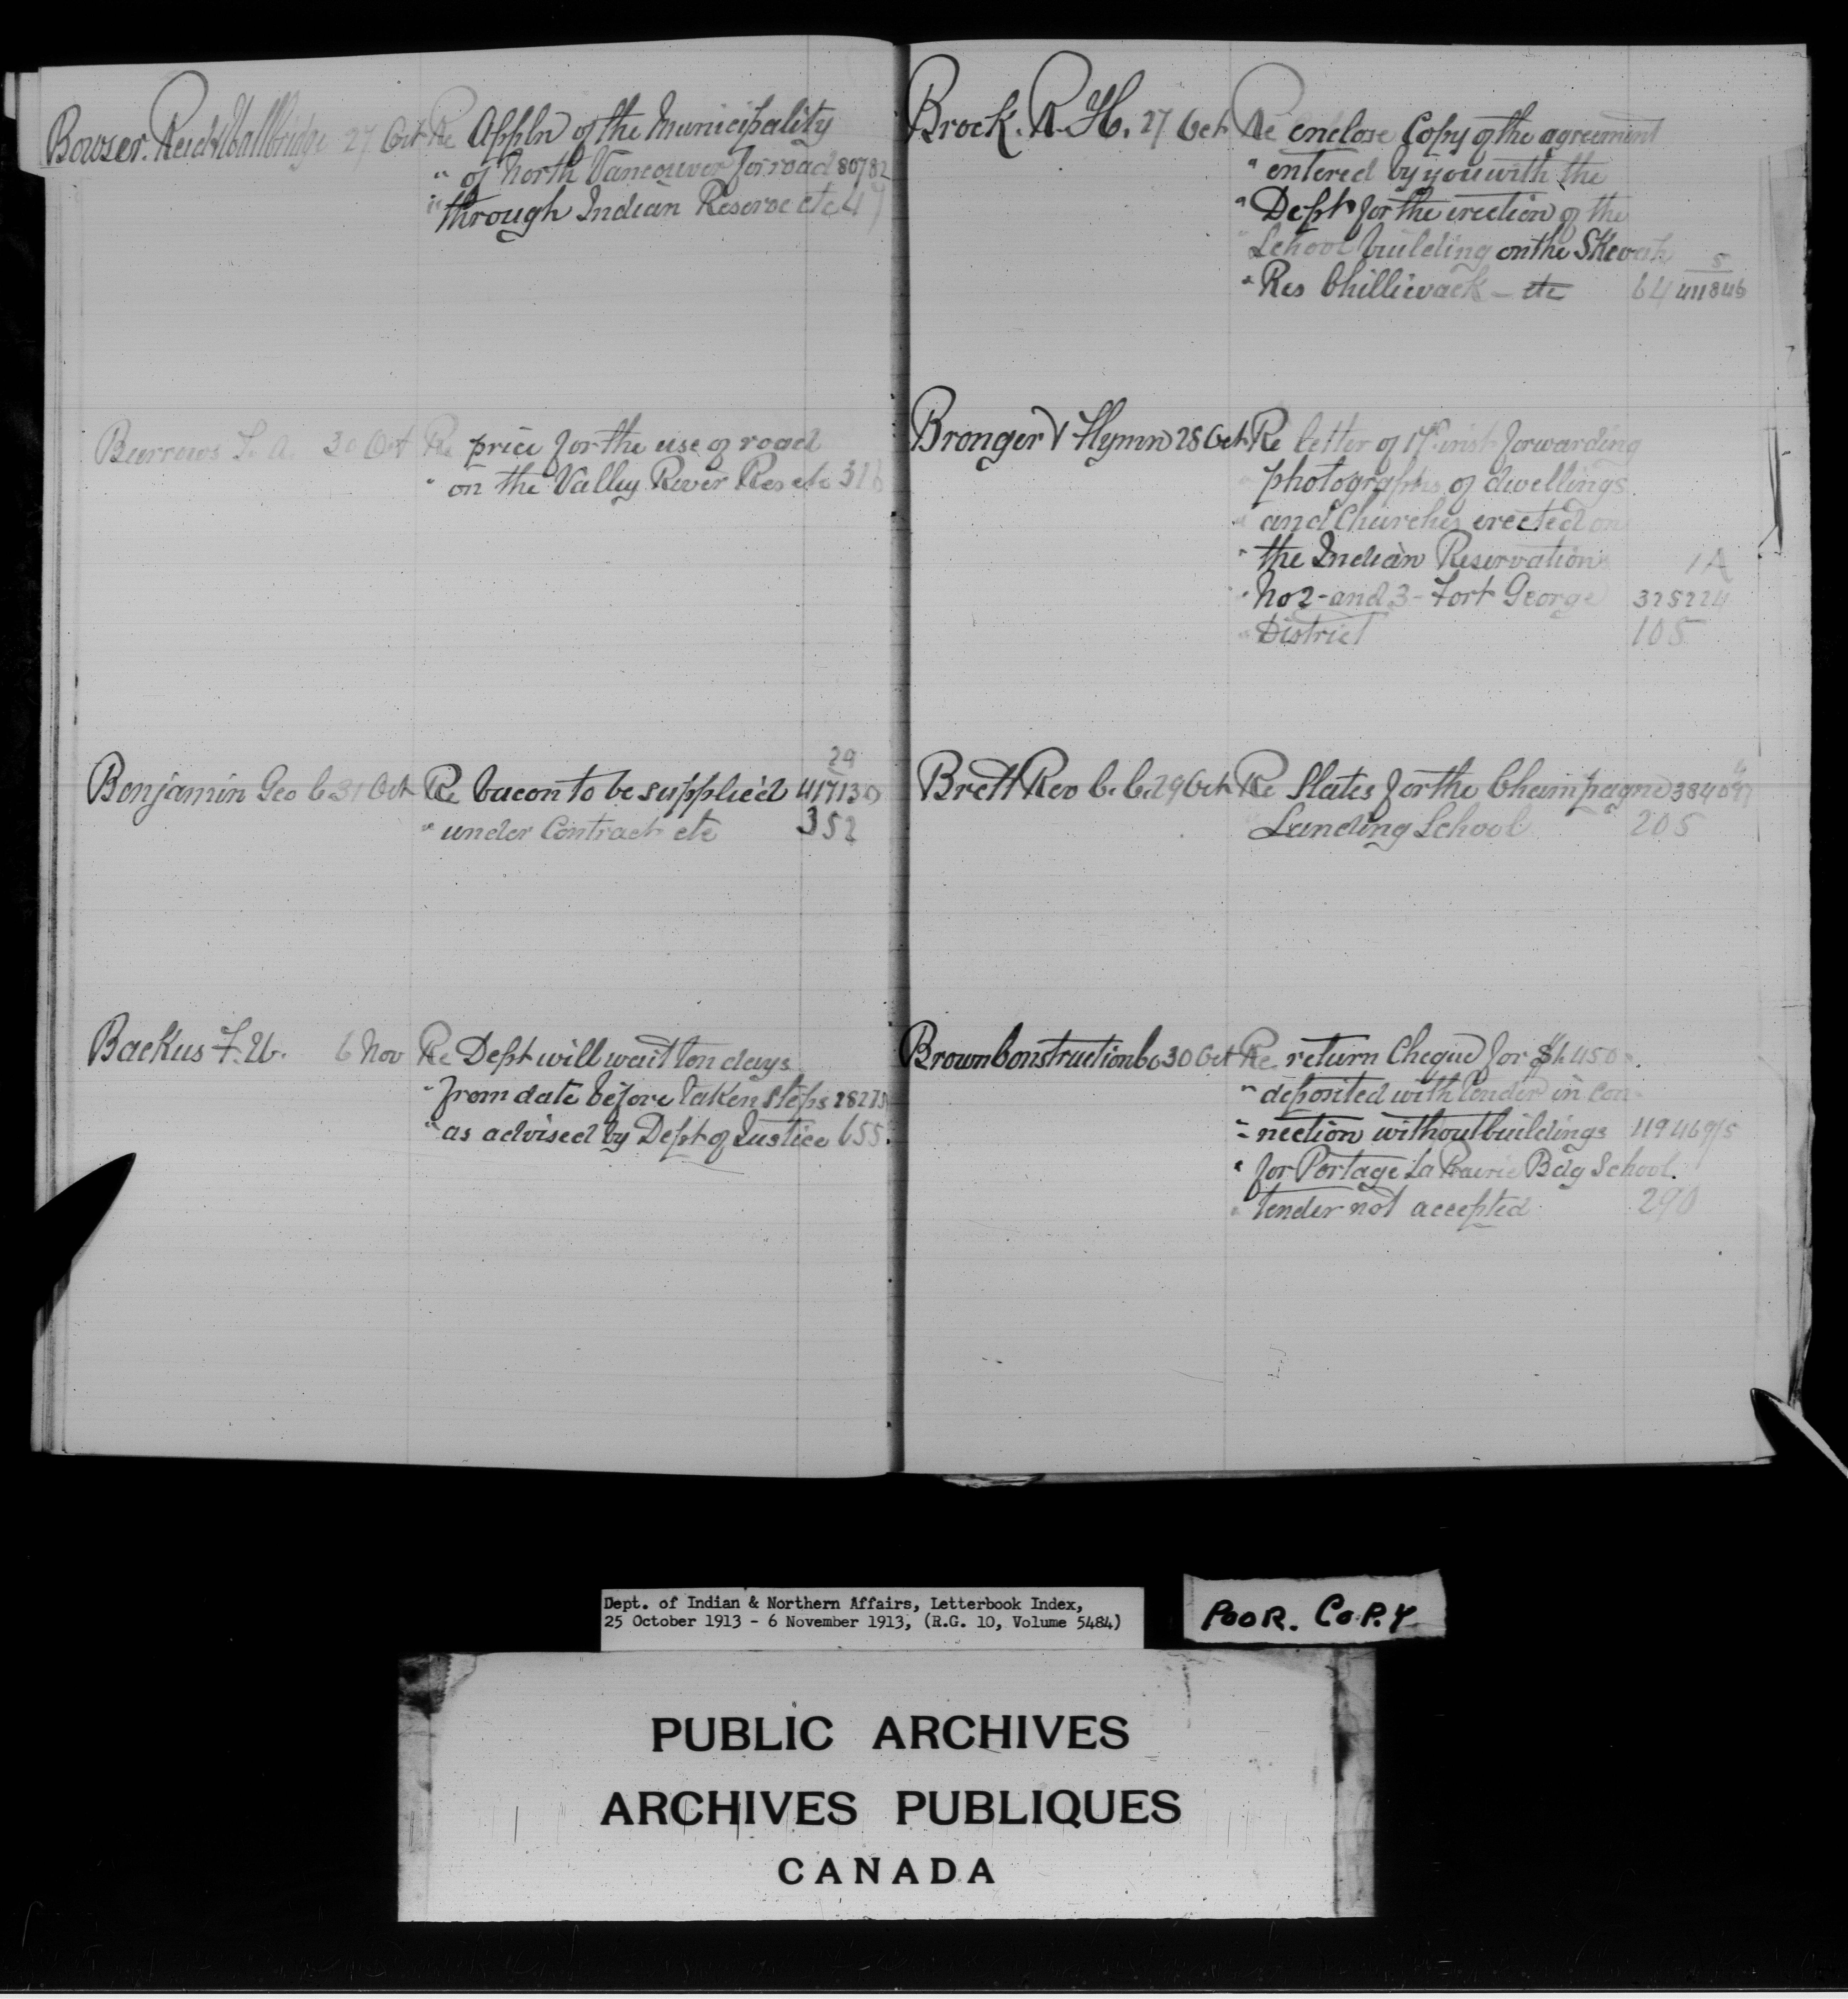 Bowser. Reid & Wallbridge 27 Oct Re Appln of the Municipality
" of North Vancouver for road 80782
" through Indian Reserve etc 47
Burrows T. A. 30 Oct Re price for the use of road
" on the Valley River Res etc 316
29
Benjamin Geo C 31 Oct Re bacon to be supplied 417130
" under Contract etc 352
Backus F. W. 6 Nov Re Dept will wait ten days
" from date before taken steps 28275
" as advised by Dept of Justice 655.
Brock. R. H. 27 Oct Re enclose Copy of the agreement
" entered by you with the
" Dept for the erection of the
" School building on the Skewah
5
" Res Chilliwack - etc 64 411846
Bronger V Flynn 28 Oct Re letter of 17th inst forwarding
" photographs of dwellings
" and Churches erected on
" the Indian Reservations 1A
" No 2 - and 3 - Fort George 325224
" District 105
Brett Rev C. C. 29 Oct Re Slates for the Champagne 384097
" Landing School 205
Brown Construction Co 30 Oct Re return Cheque for $1,450
" deposited with tender in con-
" nection without buildings 119469/5
" for Portage La Prairie Bdg School.
" tender not accepted 290
Dept. of Indian & Northern Affairs, Letterbook Index,
25 October 1913 - 6 November 1913, (R.G. 10, Volume 5484)
POOR. COPY
PUBLIC ARCHIVES
ARCHIVES PUBLIQUES
CANADA